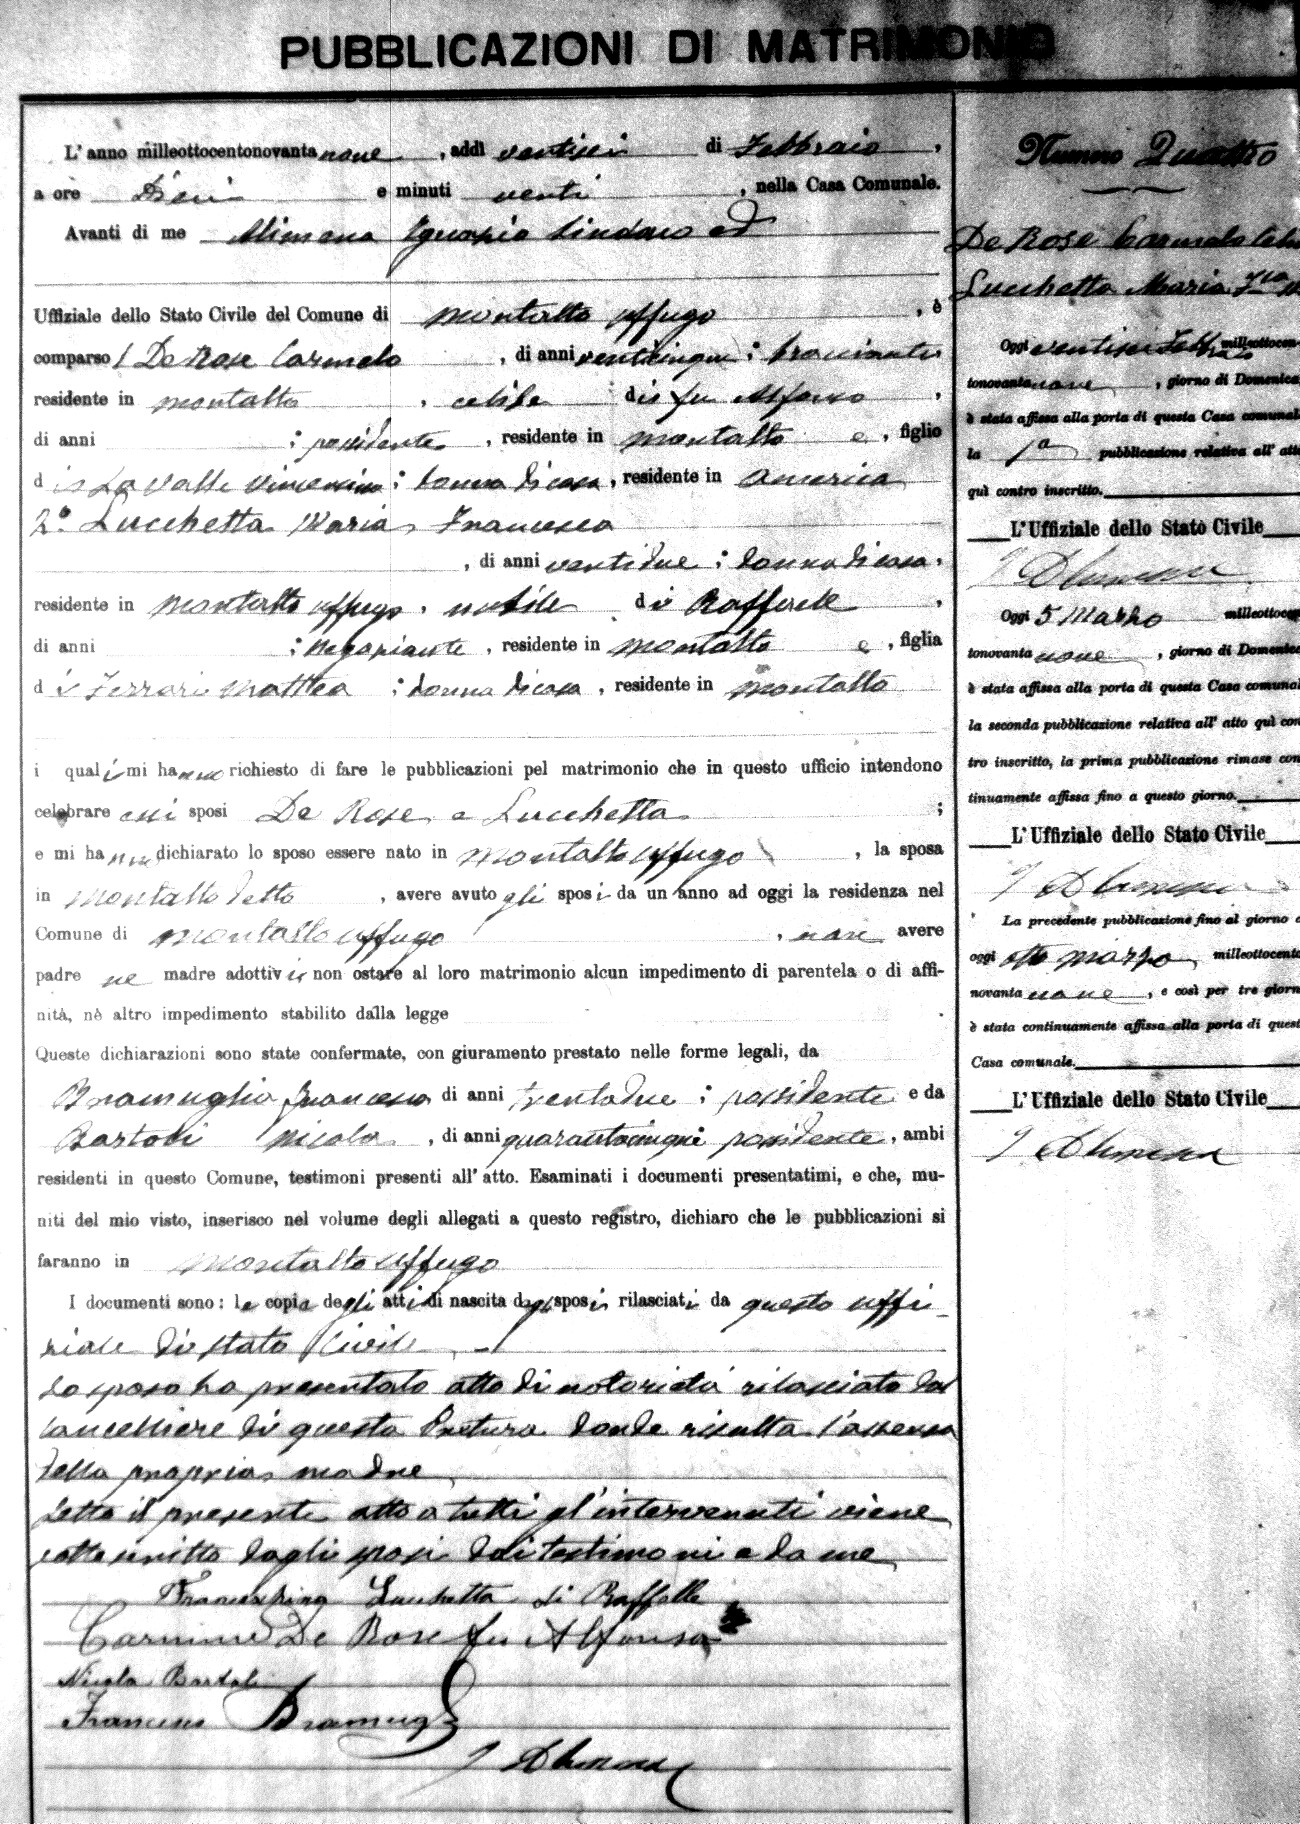 PUBBLICAZIONI DI MATRIMONIO
L' anno milleottocentonovanta nove, addì ventisei di Febbraio,
a ore Dieci e minuti venti, nella Casa Comunale.
Avanti di me Alimena Ignazio Sindaco ed
Uffiziale dello Stato Civile del Comune di Montalto Uffugo, è
comparso 1 De Rose Carmelo, di anni venticinque; bracciante
residente in Montalto, celibe di fu Alfonso,
di anni ; possidente, residente in Montalto e, figlio
di La Valle Vincenzina; donna di casa, residente in America
2° Lucchetta Maria Francesca
, di anni ventidue; donna di casa,
residente in Montalto Uffugo, nubile di Raffaele,
di anni ; Negoziante, residente in Montalto e, figlia
di Ferrari Mattea; donna di casa, residente in Montalto
i quali mi hanno richiesto di fare le pubblicazioni pel matrimonio che in questo ufficio intendono
celebrare essi sposi De Rose e Lucchetta;
e mi hanno dichiarato lo sposo essere nato in Montalto Uffugo, la sposa
in Montalto detto, avere avuto gli sposi da un anno ad oggi la residenza nel
Comune di Montalto Uffugo, non avere
padre ne madre adottivi e non ostare al loro matrimonio alcun impedimento di parentela o di affi-
nità, nè altro impedimento stabilito dalla legge
Queste dichiarazioni sono state confermate, con giuramento prestato nelle forme legali, da
Bramuglia Francesco di anni trentadue; possidente e da
Bartoli Nicola, di anni quarantacinque possidente, ambi
residenti in questo Comune, testimoni presenti all' atto. Esaminati i documenti presentatimi, e che, mu-
niti del mio visto, inserisco nel volume degli allegati a questo registro, dichiaro che le pubblicazioni si
faranno in Montalto Uffugo
I documenti sono: le copie degli atti di nascita degli sposi rilasciati da questo uffi-
ziale di stato Civile
Lo sposo ha presentato atto di notorietà rilasciato dal
Cancelliere di questa Pretura donde risulta l'assenza
della propria madre
Letto il presente atto a tutti gl'intervenuti viene
sottoscritto dagli sposi dai testimoni e da me
Franceschina Lucchetta di Raffaele
Carmine De Rose fu Alfonso
Nicola Bartoli
Francesco Bramuglia
I Alimena
Numero Quattro
De Rose Carmelo
Lucchetta Maria Fca
Oggi ventisei Febbraio milleottocen-
tonovanta nove, giorno di Domenica
è stata affissa alla porta di questa Casa comunale
la 1a pubblicazione relativa all' atto
quì contro inscritto.
L'Uffiziale dello Stato Civile
I Alimena
Oggi 5 Marzo milleottocen
tonovanta nove, giorno di Domenica
è stata affissa alla porta di questa Casa comunal
la seconda pubblicazione relativa all' atto quì con
tro inscritto, la prima pubblicazione rimase con
tinuamente affissa fino a questo giorno.
L'Uffiziale dello Stato Civile
I Alimena
La precedente pubblicazione fino al giorno d
oggi otto Marzo milleottocento
novanta nove, e così per tre giorn
è stata continuamente affissa alla porta di quest
Casa comunale.
L'Uffiziale dello Stato Civile
I Alimena